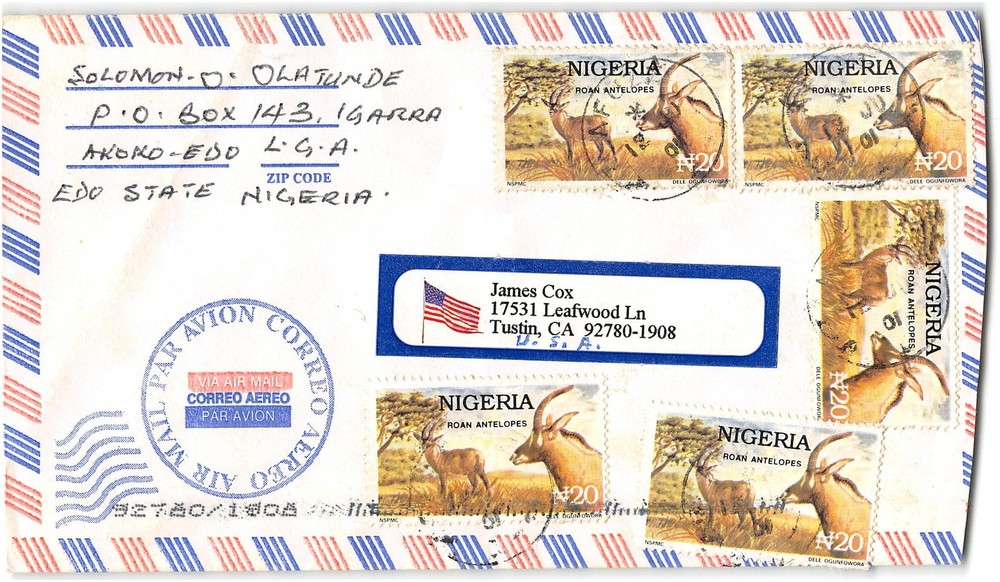 SOLOMON. O. OLATUNDE
P.O. BOX 143, IGARRA
AKOKO-EDO L.G.A.
ZIP CODE
EDO STATE NIGERIA.
NIGERIA
ROAN ANTELOPES
₦20
NSPMC
DELE OGUNFOWORA
NIGERIA
ROAN ANTELOPES
₦20
NSPMC
DELE OGUNFOWORA
NIGERIA
ROAN ANTELOPES
₦20
NSPMC
DELE OGUNFOWORA
James Cox
17531 Leafwood Ln
Tustin, CA 92780-1908
U.S.A.
AIR MAIL PAR AVION CORREO AEREO
VIA AIR MAIL
CORREO AEREO
PAR AVION
NIGERIA
ROAN ANTELOPES
₦20
NSPMC
DELE OGUNFOWORA
NIGERIA
ROAN ANTELOPES
₦20
NSPMC
DELE OGUNFOWORA
92780/1908